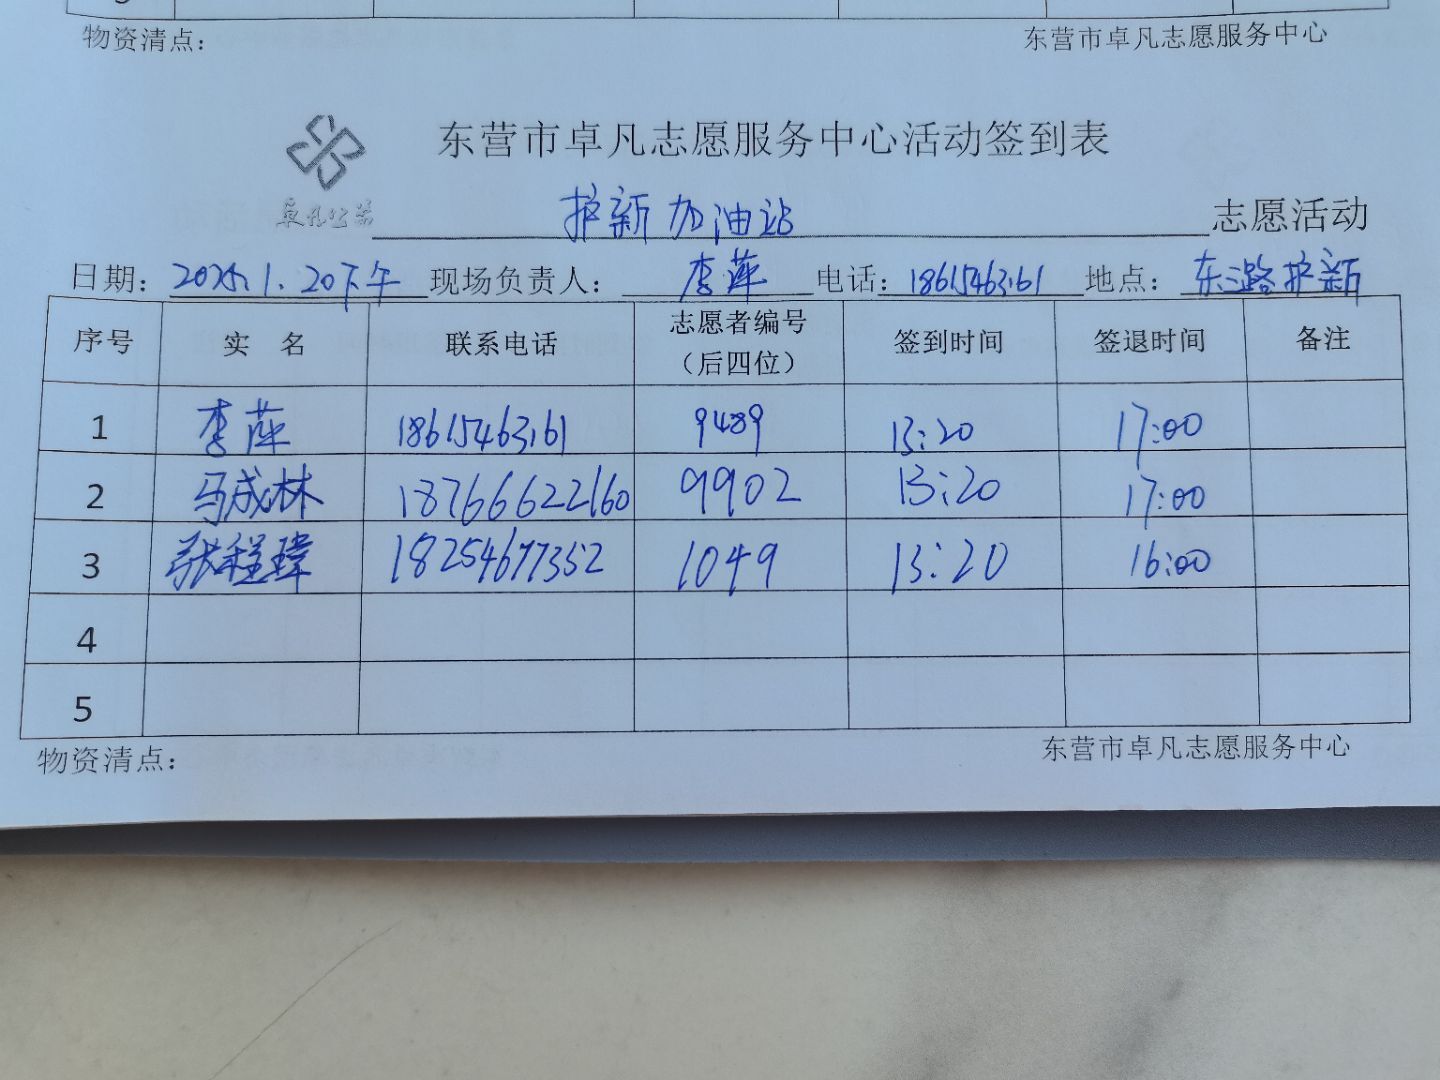 物资清点：
东营市卓凡志愿服务中心
东营市卓凡志愿服务中心活动签到表
卓凡公益
护新加油站 志愿活动
日期：2025.1.20下午 现场负责人：李萍 电话：18615463161 地点：东三路护新
序号 实 名 联系电话 志愿者编号（后四位） 签到时间 签退时间 备注
1 李萍 18615463161 9489 13:20 17:00
2 马成林 18766622160 9902 13:20 17:00
3 张程瑋 18254677352 1049 13:20 16:00
4
5
物资清点：
东营市卓凡志愿服务中心